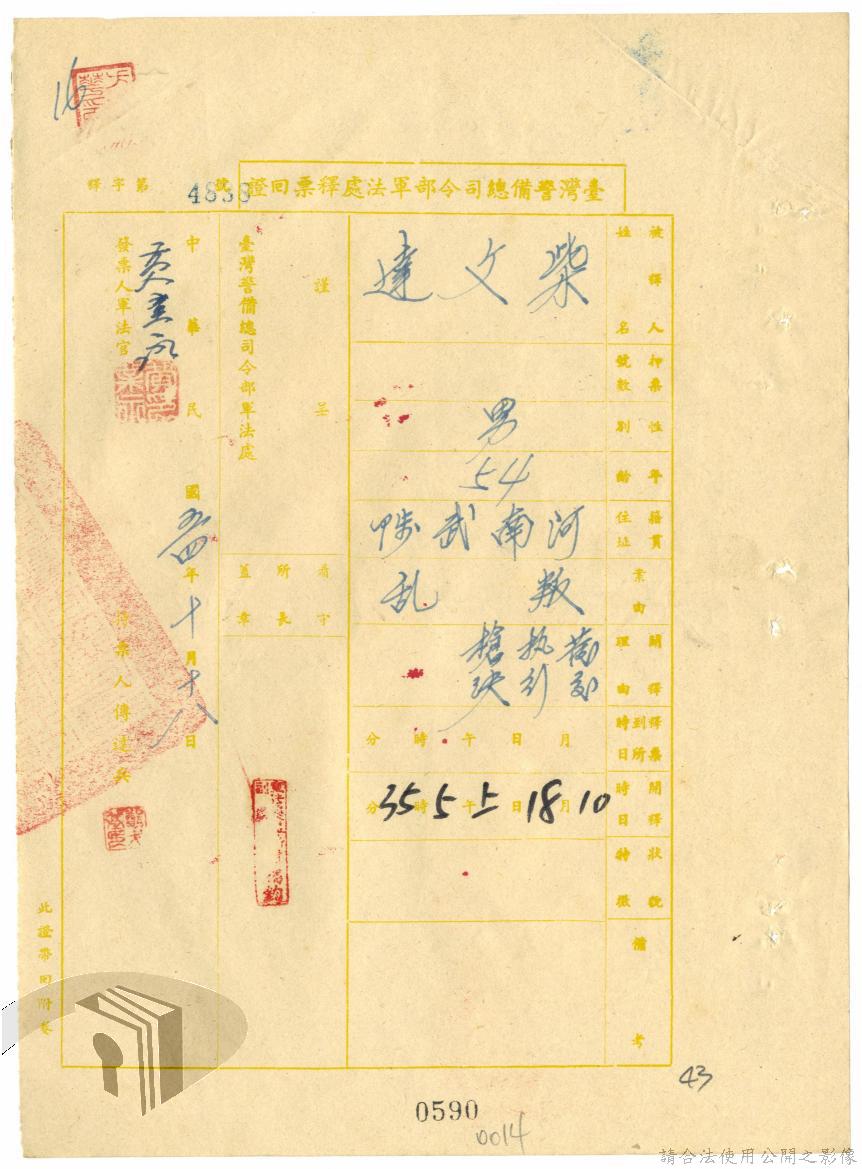 臺灣警備總司令部軍法處釋票回證
釋字第4838號
被釋人姓名
柴文達
押票號數
性別
男
年齡
54
籍貫住址
河南武陟
案由
叛乱
開釋理由
執行槍決
釋票到所日時
月日午時分
開釋日時
10月18日上午5時35分
狀貌特徵
備考
謹呈
臺灣警備總司令部軍法處
看守所長蓋章
中華民國五四年十月十八日
發票人軍法官
持票人傳達兵
此證帶回附卷
16
43
0590
0014
請合法使用公開之影像